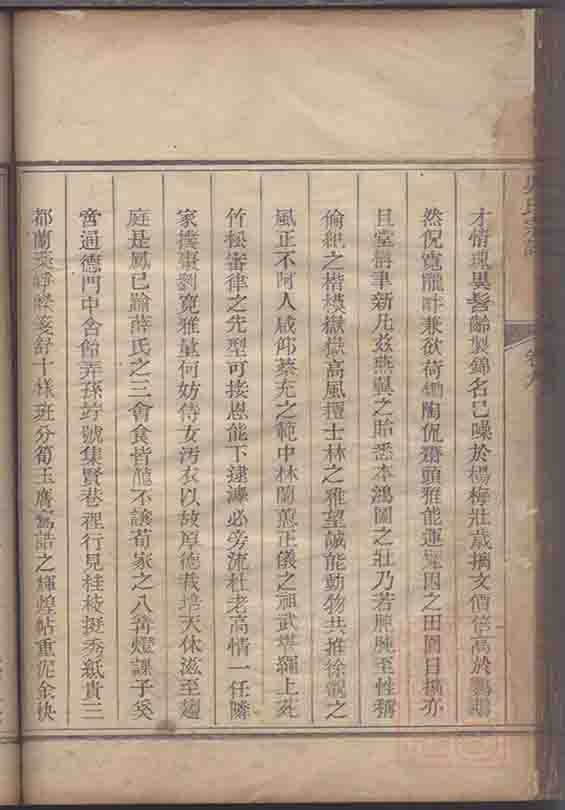 氏宗譜 卷九
才情瑰異髫齡製錦名已噪於楊梅壯歲摛文價倍高於鸚鵡
然倪寬隴畔兼欲荷鋤陶侃齋頭雅能運甓因之田園日擴亦
且堂搆聿新凡茲燕翼之貽悉本鴻圖之壯乃若肫肫至性稱
倫紀之楷模嶽嶽高風擅士林之雅望誠能動物共推徐邈之
風正不阿人咸仰蔡充之範中林蘭蕙正儀之祖武堪繩上苑
竹松審律之先型可接恩能下逮濊必旁流杜老高情一任隣
家撲棗劉寬雅量何妨侍女污衣以故厚德栽培天休滋至趨
庭是鳳已踰薛氏之三會食皆龍不讓荀家之八篝燈課子奚
啻通德門中含飴弄孫竚號集賢巷裡行見桂枝挺秀紙貴三
都蘭葉箋舒十樣班分筍玉膺寫誥之輝煌帖重泥金快